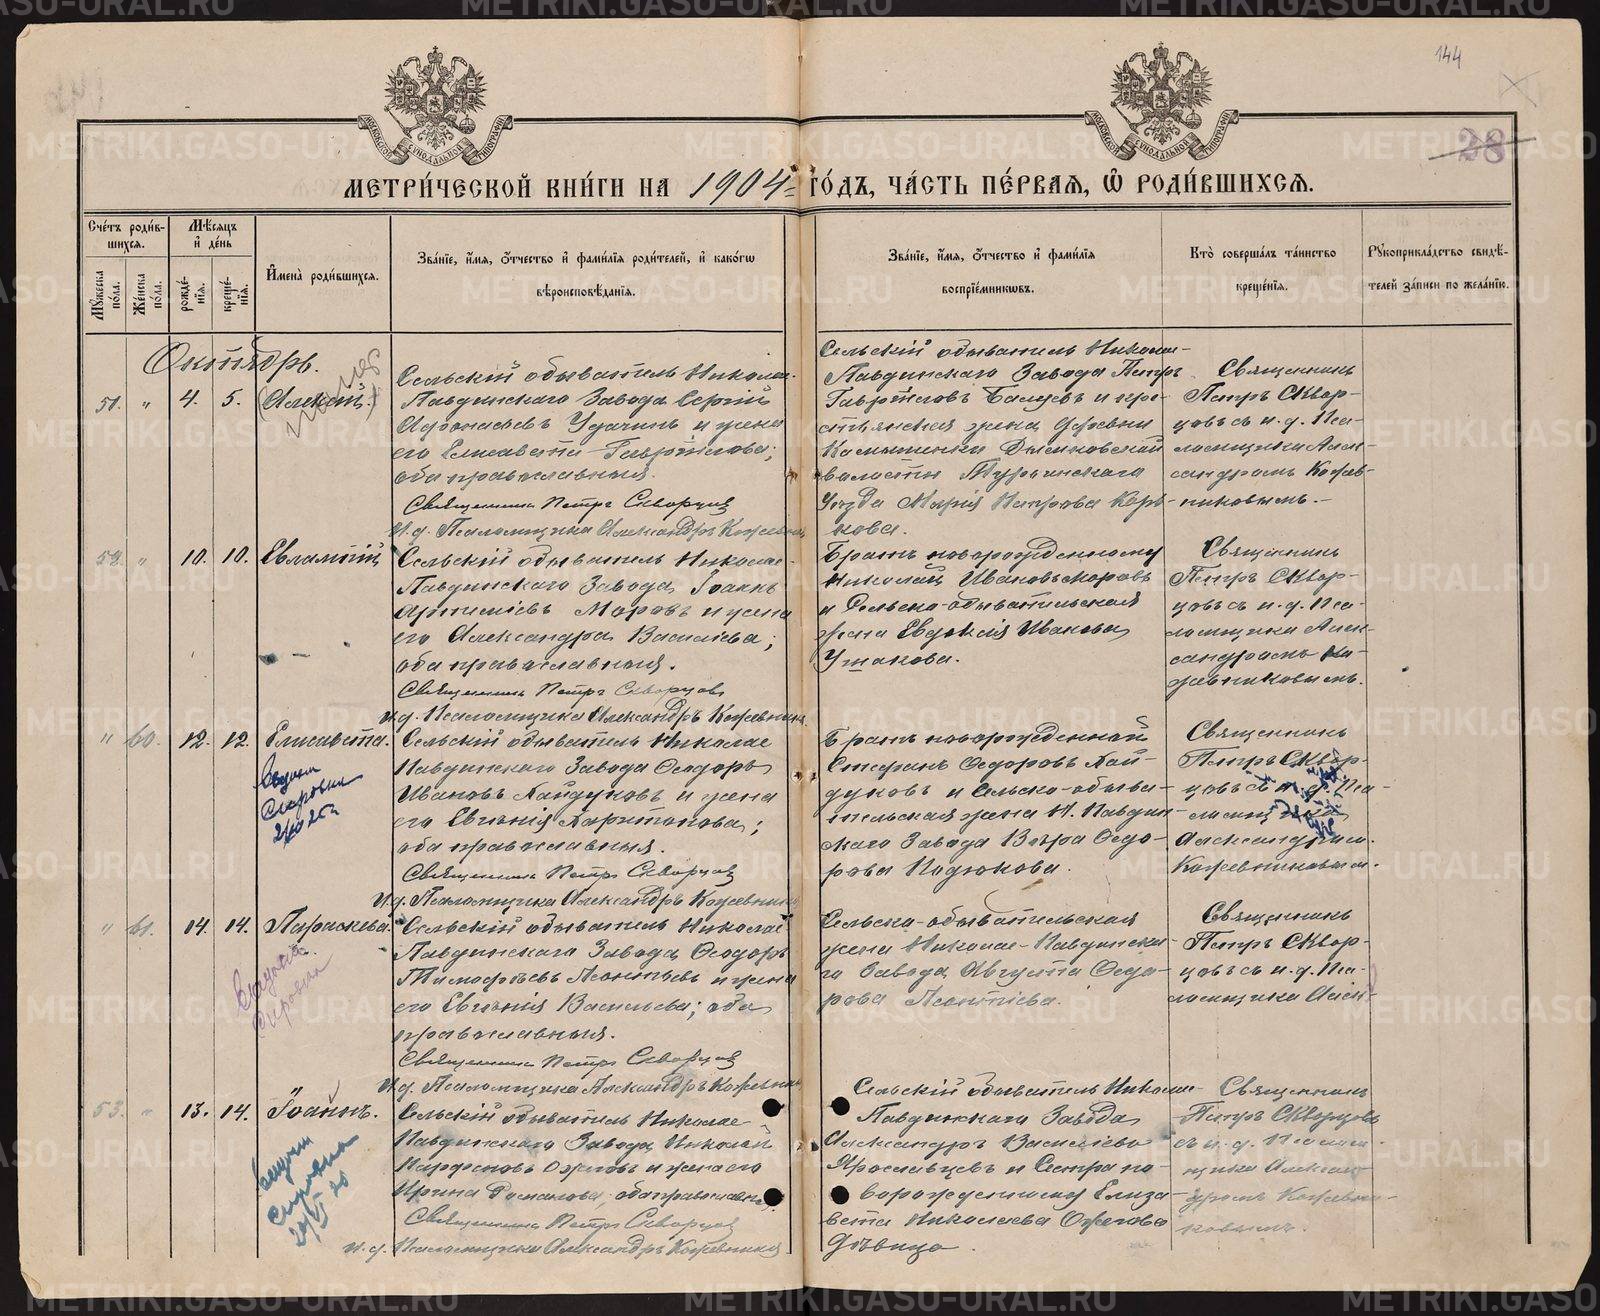 144
28
МЕТРИ́ЧЕСКОЙ КНИ́ГИ НА 1904 ГО́ДЪ, ЧА́СТЬ ПЕ́РВАЯ, Ѽ РОДИ́ВШИХСЯ.
МОСКОВСКОЙ СУНОДАЛЬНОЙ ТИПОГРАФІИ
МОСКОВСКОЙ СУНОДАЛЬНОЙ ТИПОГРАФІИ
Сче́тъ роди́в-
шихся.
Мꙋ́жеска по́ла.
Же́нска по́ла.
Мѣ́сяцъ
и҆ де́нь
рожде́-
нїѧ.
креще́-
нїѧ.
И҆мена̀ роди́вшихся.
Зва́нїе, и҆́мѧ, ѻ҆́тчество и҆ фами́лїѧ роди́телей, и҆ како́гѡ
вѣроисповѣ́данїѧ.
Зва́нїе, и҆́мѧ, ѻ҆́тчество и҆ фами́лїѧ
воспрїе́мникѡвъ.
Кто̀ соверша́лъ та́инство
креще́нїѧ.
Рꙋкоприкла́дство свидѣ́-
телей за́писи по жела́нїю.
Октябрь.
51. " 4. 5. Алексій.
Сельскій обыватель Николае-
Павдинскаго Завода Сергій
Афонасіевъ Удачинъ и жена
его Елисавета Гавріилова;
оба православныя.
Священникъ Петръ Скворцовъ
И. д. Псаломщика Александръ Кожевник
Сельскій обыватель Николае-
Павдинскаго Завода Петръ
Гавріиловъ Балуевъ и кре-
стьянская жена деревни
Камышенки Дымковской
волости Туринскаго
Уѣзда Марія Петрова Кор-
кова.
Священникъ
Петръ Сквор-
цовъ съ и. д. Пса-
ломщика Алек-
сандромъ Кожев-
никовымъ.
52. " 10. 10. Евлампій
Сельскій обыватель Николае-
Павдинскаго Завода Іоаннъ
Артеміевъ Моровъ и жена
его Александра Василіева;
оба православныя.
Священникъ Петръ Скворцовъ
И. д. Псаломщика Александръ Кожевник
Братъ новорожденному
Николай Ивановъ Моровъ
и Сельско-обывательская
жена Евдокія Иванова
Ушакова.
Священникъ
Петръ Сквор-
цовъ съ и. д. Пса-
ломщика Алек-
сандромъ Ко-
жевниковымъ.
" 60. 12. 12. Елисавета.
Сельскій обыватель Николае
Павдинскаго Завода Ѳеодоръ
Ивановъ Кайдуковъ и жена
его Евгенія Харитонова;
оба православныя.
Священникъ Петръ Скворцовъ
И. д. Псаломщика Александръ Кожевник
Братъ новорожденной
Стефанъ Ѳедоровъ Кай-
дуковъ и Сельско-обыва-
тельская жена Н. Павдин-
скаго Завода Вѣра Ѳедо-
рова Кадюкова.
Священникъ
Петръ Сквор-
цовъ съ и. д. Пса-
ломщика
Александромъ
Кожевниковым.
" 61. 14. 14. Параскева.
Сельскій обыватель Николае
Павдинскаго Завода Ѳеодоръ
Тимофѣевъ Леонтьевъ и жена
его Евгенія Васильева; оба
православныя.
Священникъ Петръ Скворцовъ
И. д. Псаломщика Александръ Кожевник
Сельско-обывательская
жена Николае-Павдинска-
го Завода Августа Ѳедо-
рова Леонтіева.
Священникъ
Петръ Сквор-
цовъ съ и. д. Пса-
ломщика Алек-
53. " 13. 14. Іоаннъ.
Сельскій обыватель Николае
Павдинскаго Завода Николай
Парфеновъ Ожеговъ и жена его
Ирина Романова; оба православн.
Священникъ Петръ Скворцовъ
И. д. Псаломщика Александръ Кожевник
Сельскій обыватель Николае-
Павдинскаго Завода
Александръ Василіевъ
Ярославцевъ и Сестра но-
ворожденному Елиза-
вета Николаева Ожегова
Дѣвица.
Священникъ
Петръ Скворцовъ
съ и. д. Псалом-
щика Алексан-
дромъ Кожевни-
ковымъ.